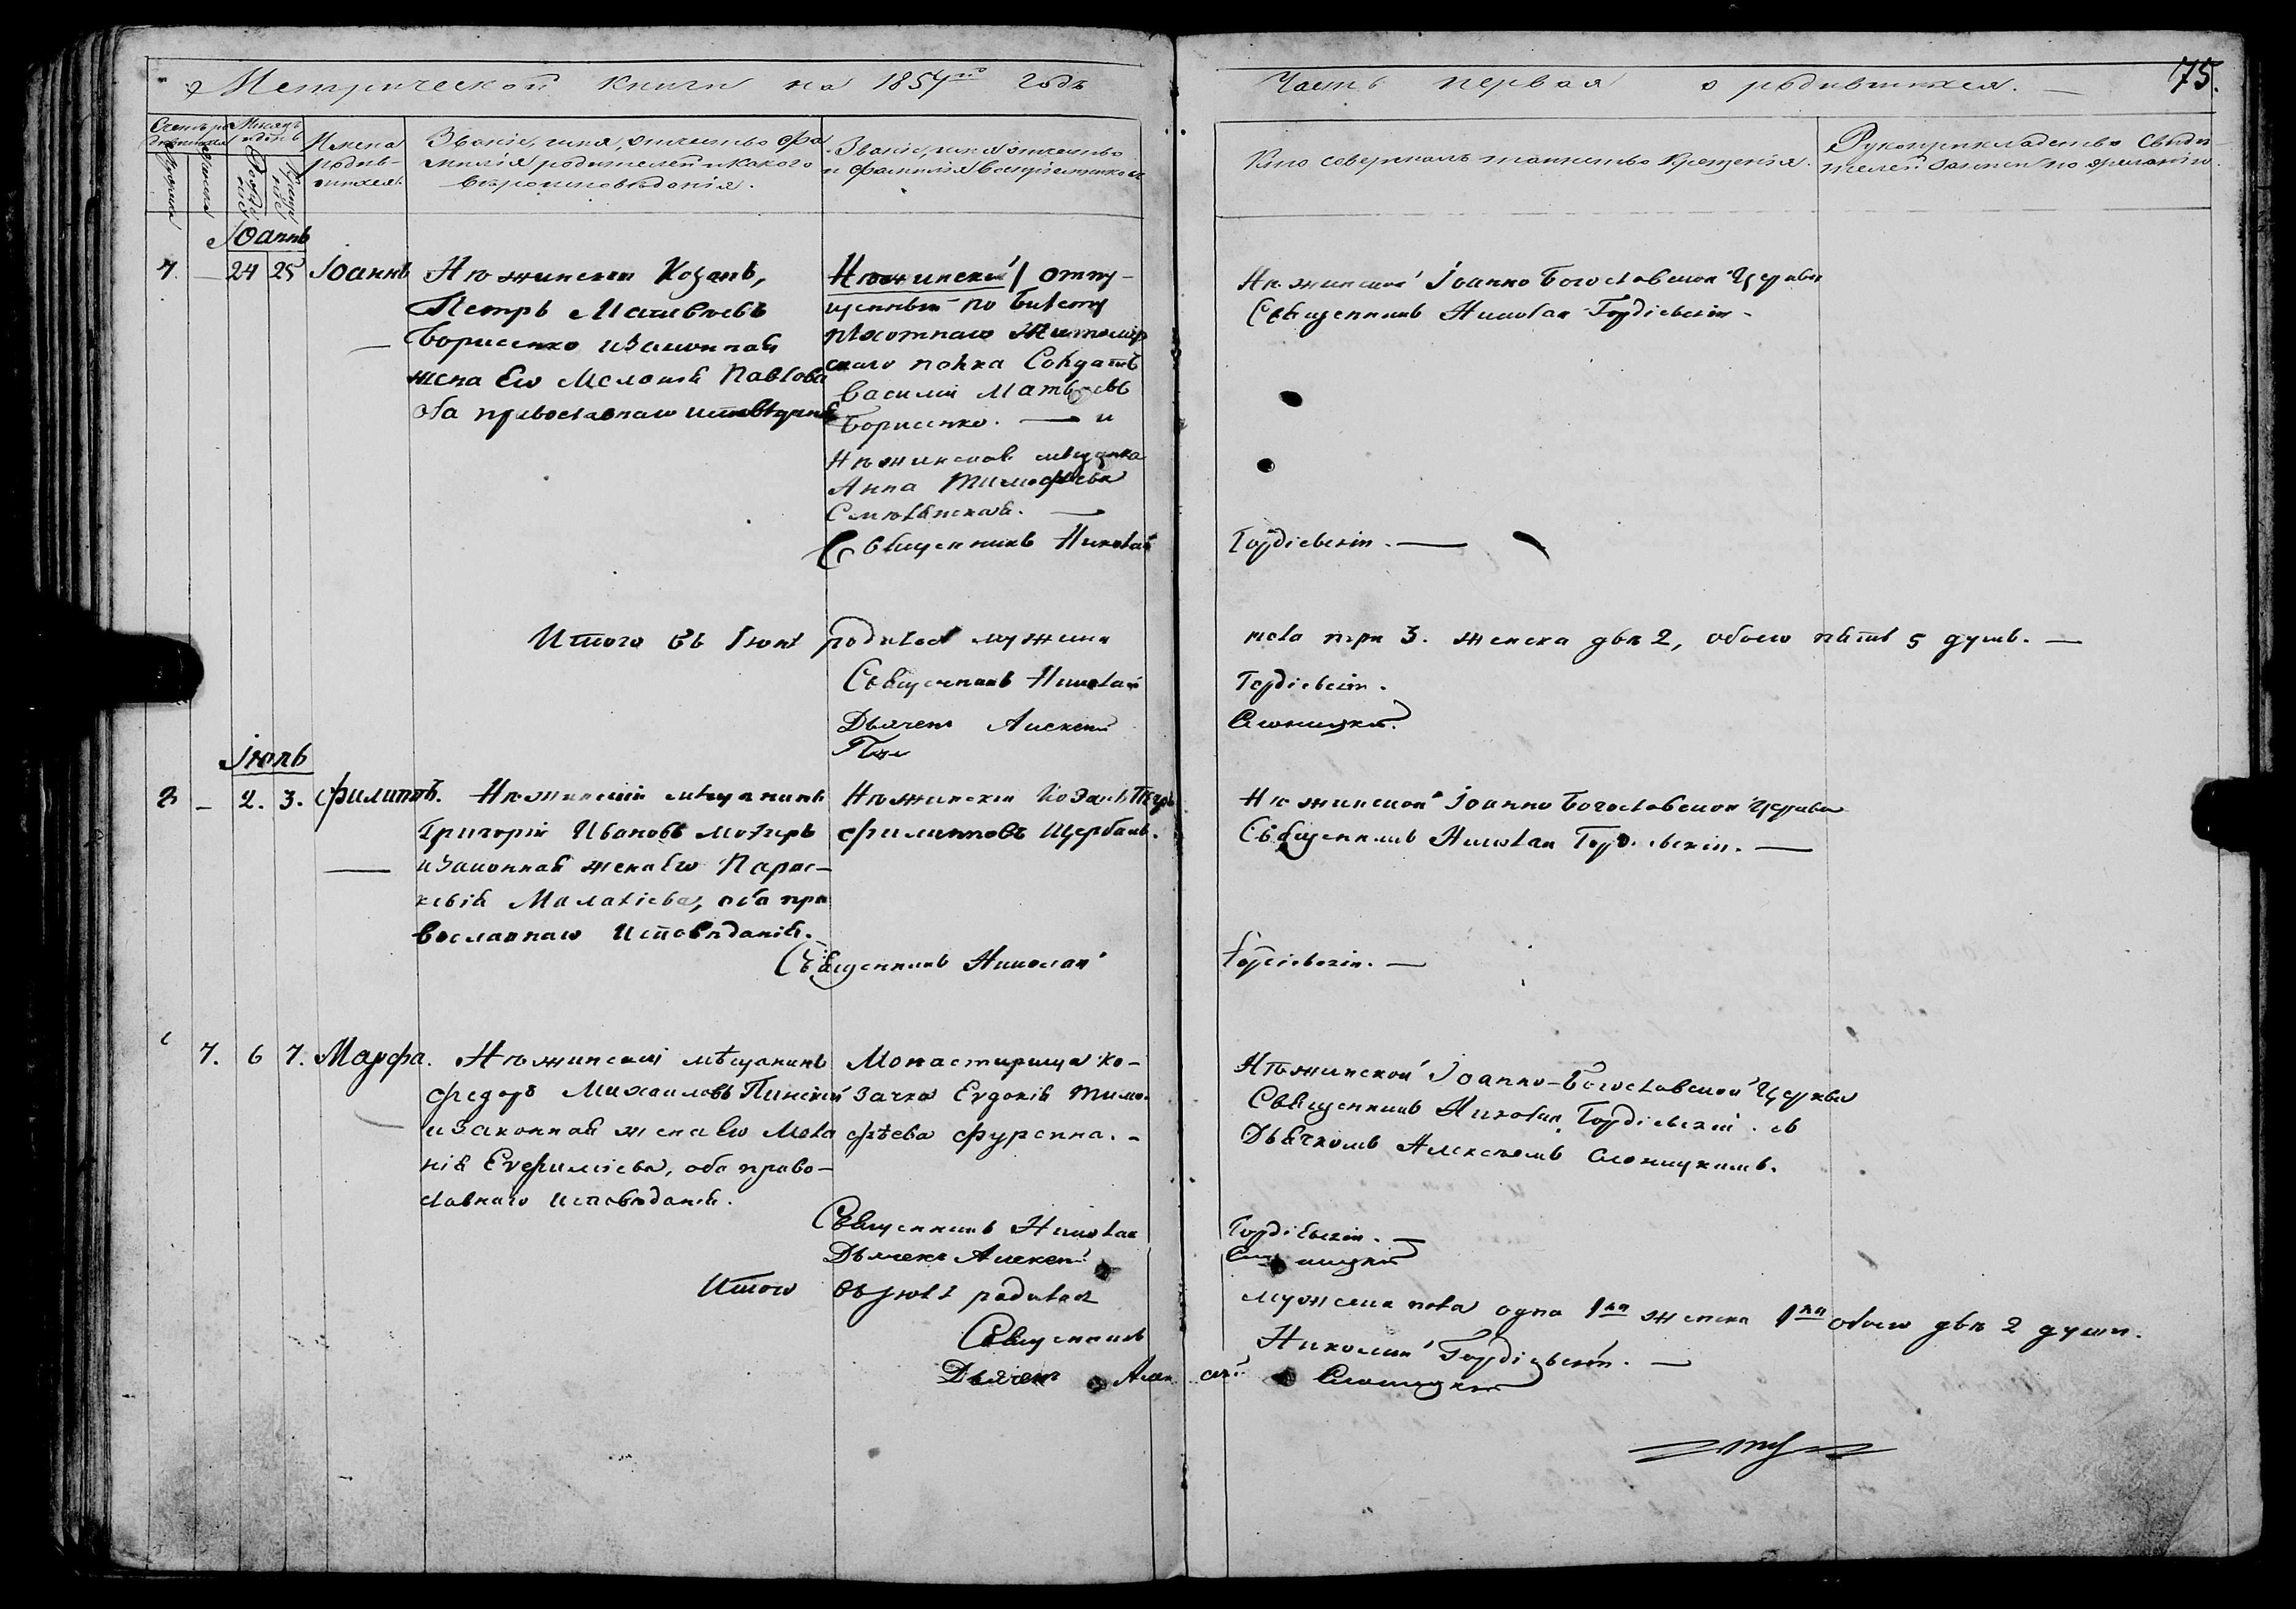 Метрической книги на 1857го годъ
Часть первая о родившихся.
75.
Счетъ родившихся
Мужеска
Женска
Месяцъ и день
Рожденія
Крещенія
Имена родившихся.
Званіе, имя, отчество, фамилія родителей и какого вѣроисповѣданія.
Званіе, имя, отчество и фамилія воспріемниковъ
Кто совершалъ таинство крещенія.
Рукоприкладство свидѣтелей записи по желанію.
Іюнь
7. — 24 25 Іоаннъ
Нѣжинскій Козакъ,
Петръ Матвѣевъ
Борисенко и законная
жена Его Меланія Павлова
оба православнаго исповѣданія
Нѣжинскій отпу-
щенный по билету
пѣхотнаго Житомир
скаго полка Солдатъ
Василій Матвѣевъ
Борисенко. — и
Нѣжинская мѣщанка
Анна Тимофѣева
Священникъ Николай
Нѣжинской Іоанно Богословской Церкви
Священникъ Николай Гордіевскій.
Гордіевскій. —
Итого въ Іюнѣ родилося мужеска
пола три 3. женска двѣ 2, обоего пять 5 душъ. —
Священникъ Николай
Гордіевскій.
Дьячекъ Алексей
Слоницкій.
Іюль
8 — 2. 3. Филиппъ.
Нѣжинскій мѣщанинъ
Григорій Ивановъ
и законная жена Его Парас-
кевія Малахіева, оба пра
вославнаго Исповѣданія.
Нѣжинскій Козакъ Петръ
Филипповъ Щербакъ.
Нѣжинской Іоанно Богословской Церкви
Священникъ Николай Гордіевскій. —
Священникъ Николай
Гордіевскій. —
7. 6 7. Марфа.
Нѣжинскій мѣщанинъ
Федоръ Михаиловъ Пинскій
и законная жена Его Мела
нія Евфиміева, оба право-
славнаго исповѣданія.
Монастырища ко-
зачка Евдокія Тимо-
фѣева Фурсина. -
Нѣжинской Іоанно-Богословской Церкви
Священникъ Николай Гордіевскій. съ
Дьячкомъ Алексѣемъ Слоницкимъ.
Священникъ Николай
Гордіевскій. —
Дьячекъ Алексей
Слоницкій
Итого въ Іюлѣ родилося
мужеска пола одна 1на женска 1на обоего двѣ 2 души.
Священникъ
Николай Гордіевскій. —
Дьячекъ Алексей Слоницкій